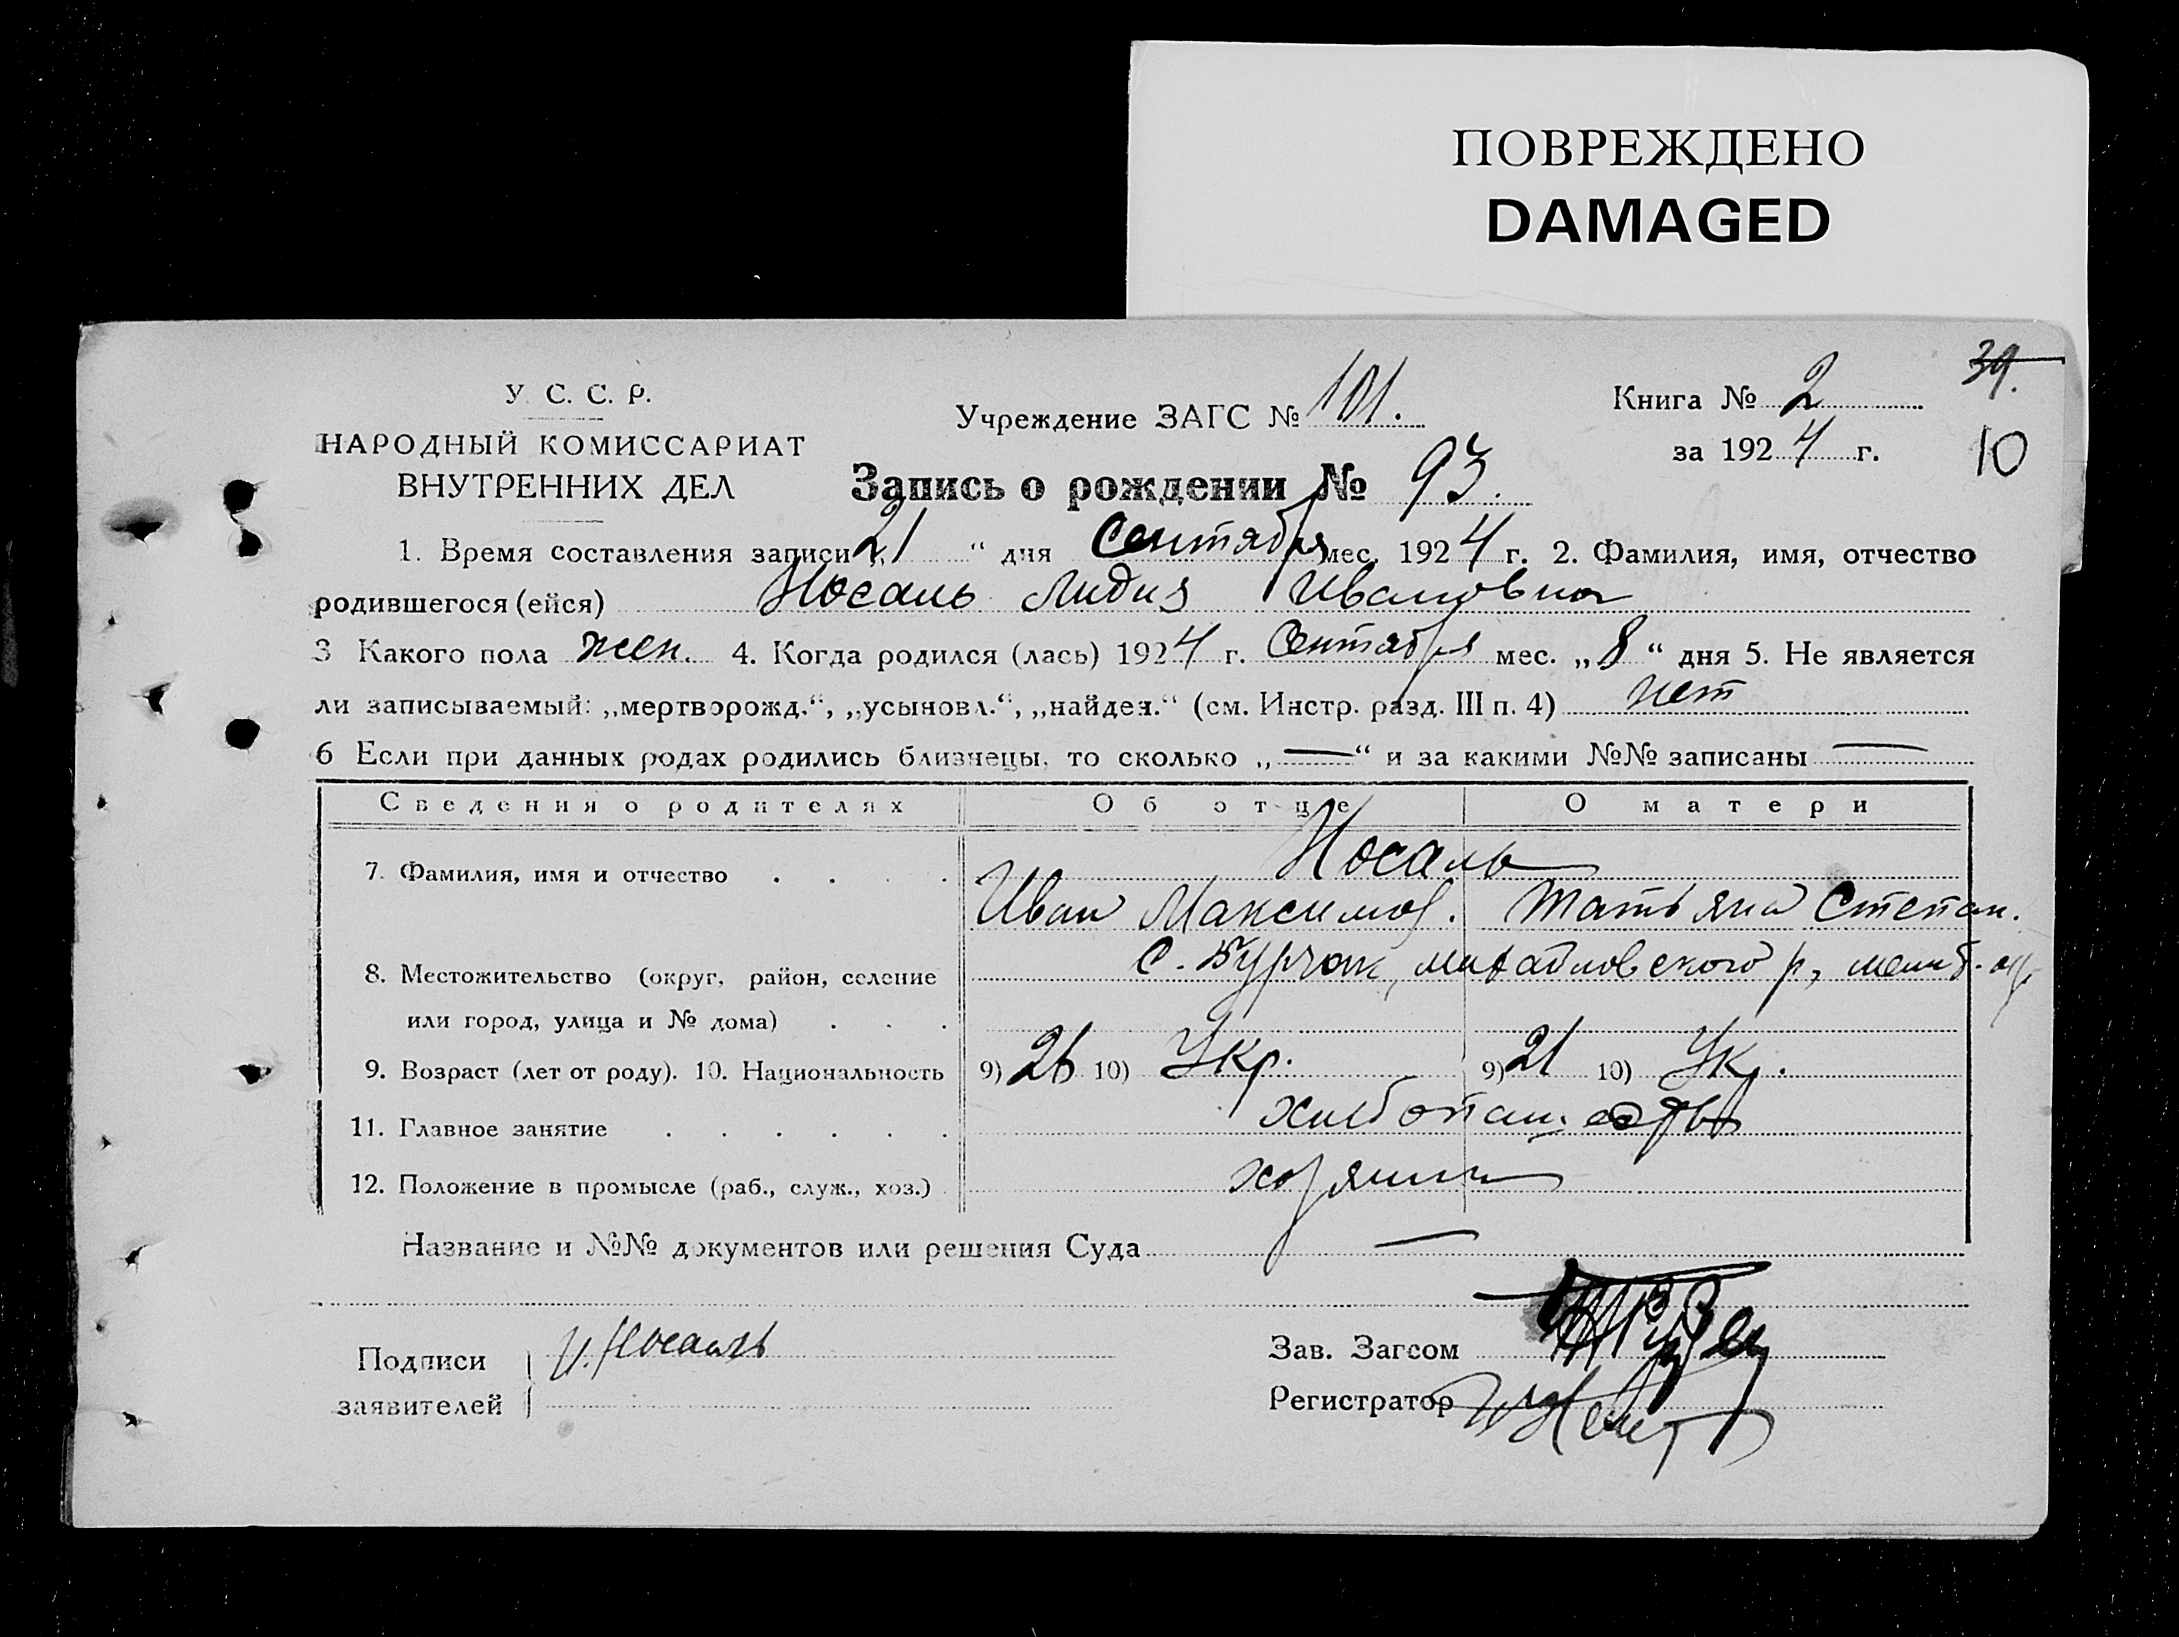 ПОВРЕЖДЕНО
DAMAGED
39.
10
У. С. С. Р.
НАРОДНЫЙ КОМИССАРИАТ
ВНУТРЕННИХ ДЕЛ
Учреждение ЗАГС № 101.
Книга № 2
за 1924 г.
Запись о рождении № 93.
1. Время составления записи „21“ дня Сентября мес. 1924 г. 2. Фамилия, имя, отчество
родившегося (ейся) Носаль Лидия Ивановна
3 Какого пола жен. 4. Когда родился (лась) 1924 г. Сентября мес. „8“ дня 5. Не является
ли записываемый: „мертворожд.“, „усыновл.“, „найден.“ (см. Инстр. разд. III п. 4) нет
6 Если при данных родах родились близнецы, то сколько „—“ и за какими №№ записаны —
Сведения о родителях Об отце О матери
7. Фамилия, имя и отчество . . . . Носаль
Иван Максимов. Татьяна Степан.
8. Местожительство (округ, район, селение с. Бурчак, михайловского р,
или город, улица и № дома) . . .
9. Возраст (лет от роду). 10. Национальность 9) 26 10) Укр. 9) 21 10) Укр.
11. Главное занятие . . . . . . хлебопаш.
12. Положение в промысле (раб., служ., хоз.) хозяин
Название и №№ документов или решения Суда —
Подписи заявителей И. Носаль
Зав. Загсом
Регистратор